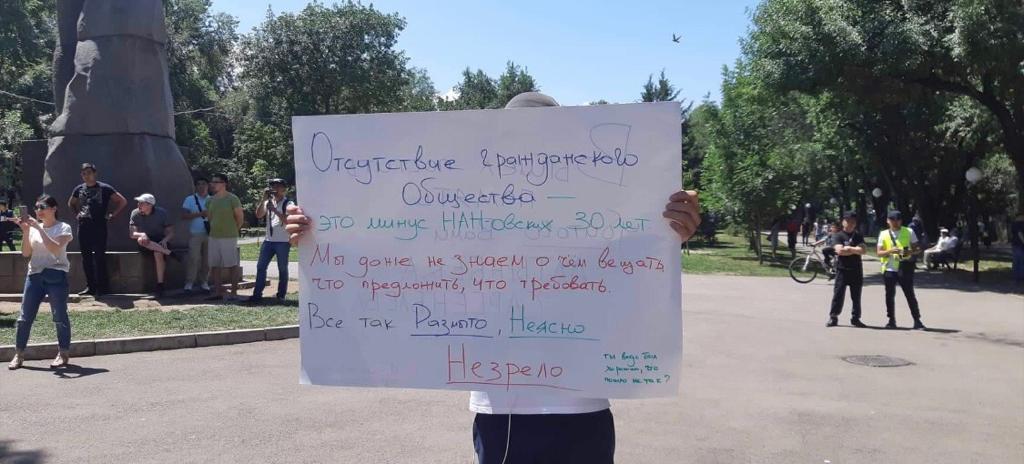 Отсутствие гражданского
Общества —
это минус НАН-овских 30 лет
Мы даже не знаем о чём вещать,
что предложить, что требовать.
Все так Размыто, Неясно
Незрело
ты ведь был
хорошим, что
пошло не так?